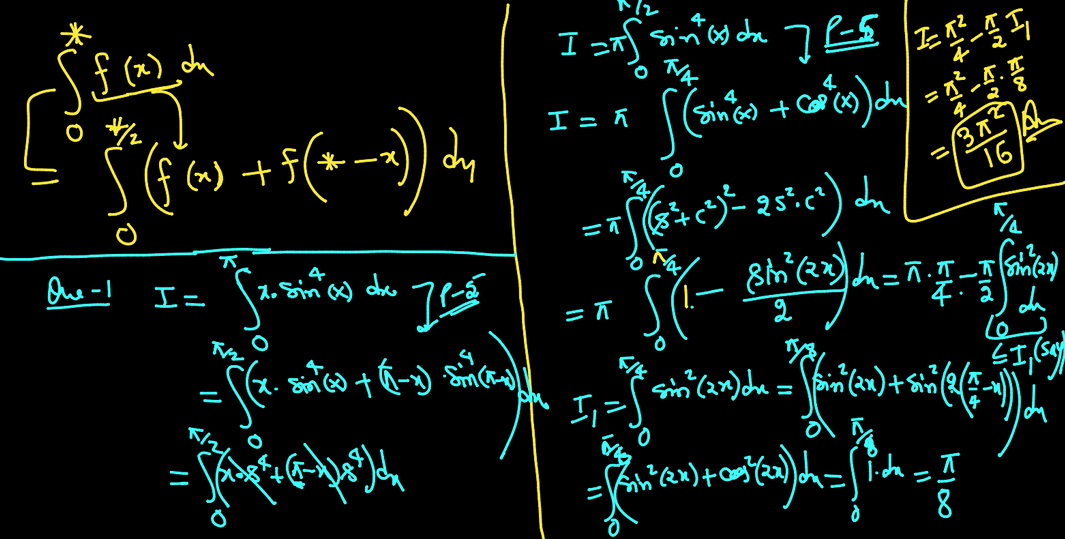 ∫₀^* f(x) dx
= ∫₀^{*/2} (f(x) + f(* − x)) dx
Que-1 I = ∫₀^π x·sin⁴(x) dx P-5
= ∫₀^{π/2} (x·sin⁴(x) + (π−x)·sin⁴(π−x)) dx
= ∫₀^{π/2} (x·s⁴ + (π−x)s⁴) dx
I = π ∫₀^{π/2} sin⁴(x) dx P-5
I = π ∫₀^{π/4} (sin⁴(x) + cos⁴(x)) dx
= π ∫₀^{π/4} ((s²+c²)² − 2s²·c²) dx
= π ∫₀^{π/4} (1 − (sin²(2x))/2) dx = π·π/4 − π/2 ∫₀^{π/4} sin²(2x) dx
I₁ (say)
I₁ = ∫₀^{π/4} sin²(2x) dx = ∫₀^{π/8} (sin²(2x) + sin²(2(π/4 − x))) dx
= ∫₀^{π/8} (sin²(2x) + cos²(2x)) dx = ∫₀^{π/8} 1·dx = π/8
I = π²/4 − π/2 I₁
= π²/4 − π/2 · π/8
= 3π²/16 Ans